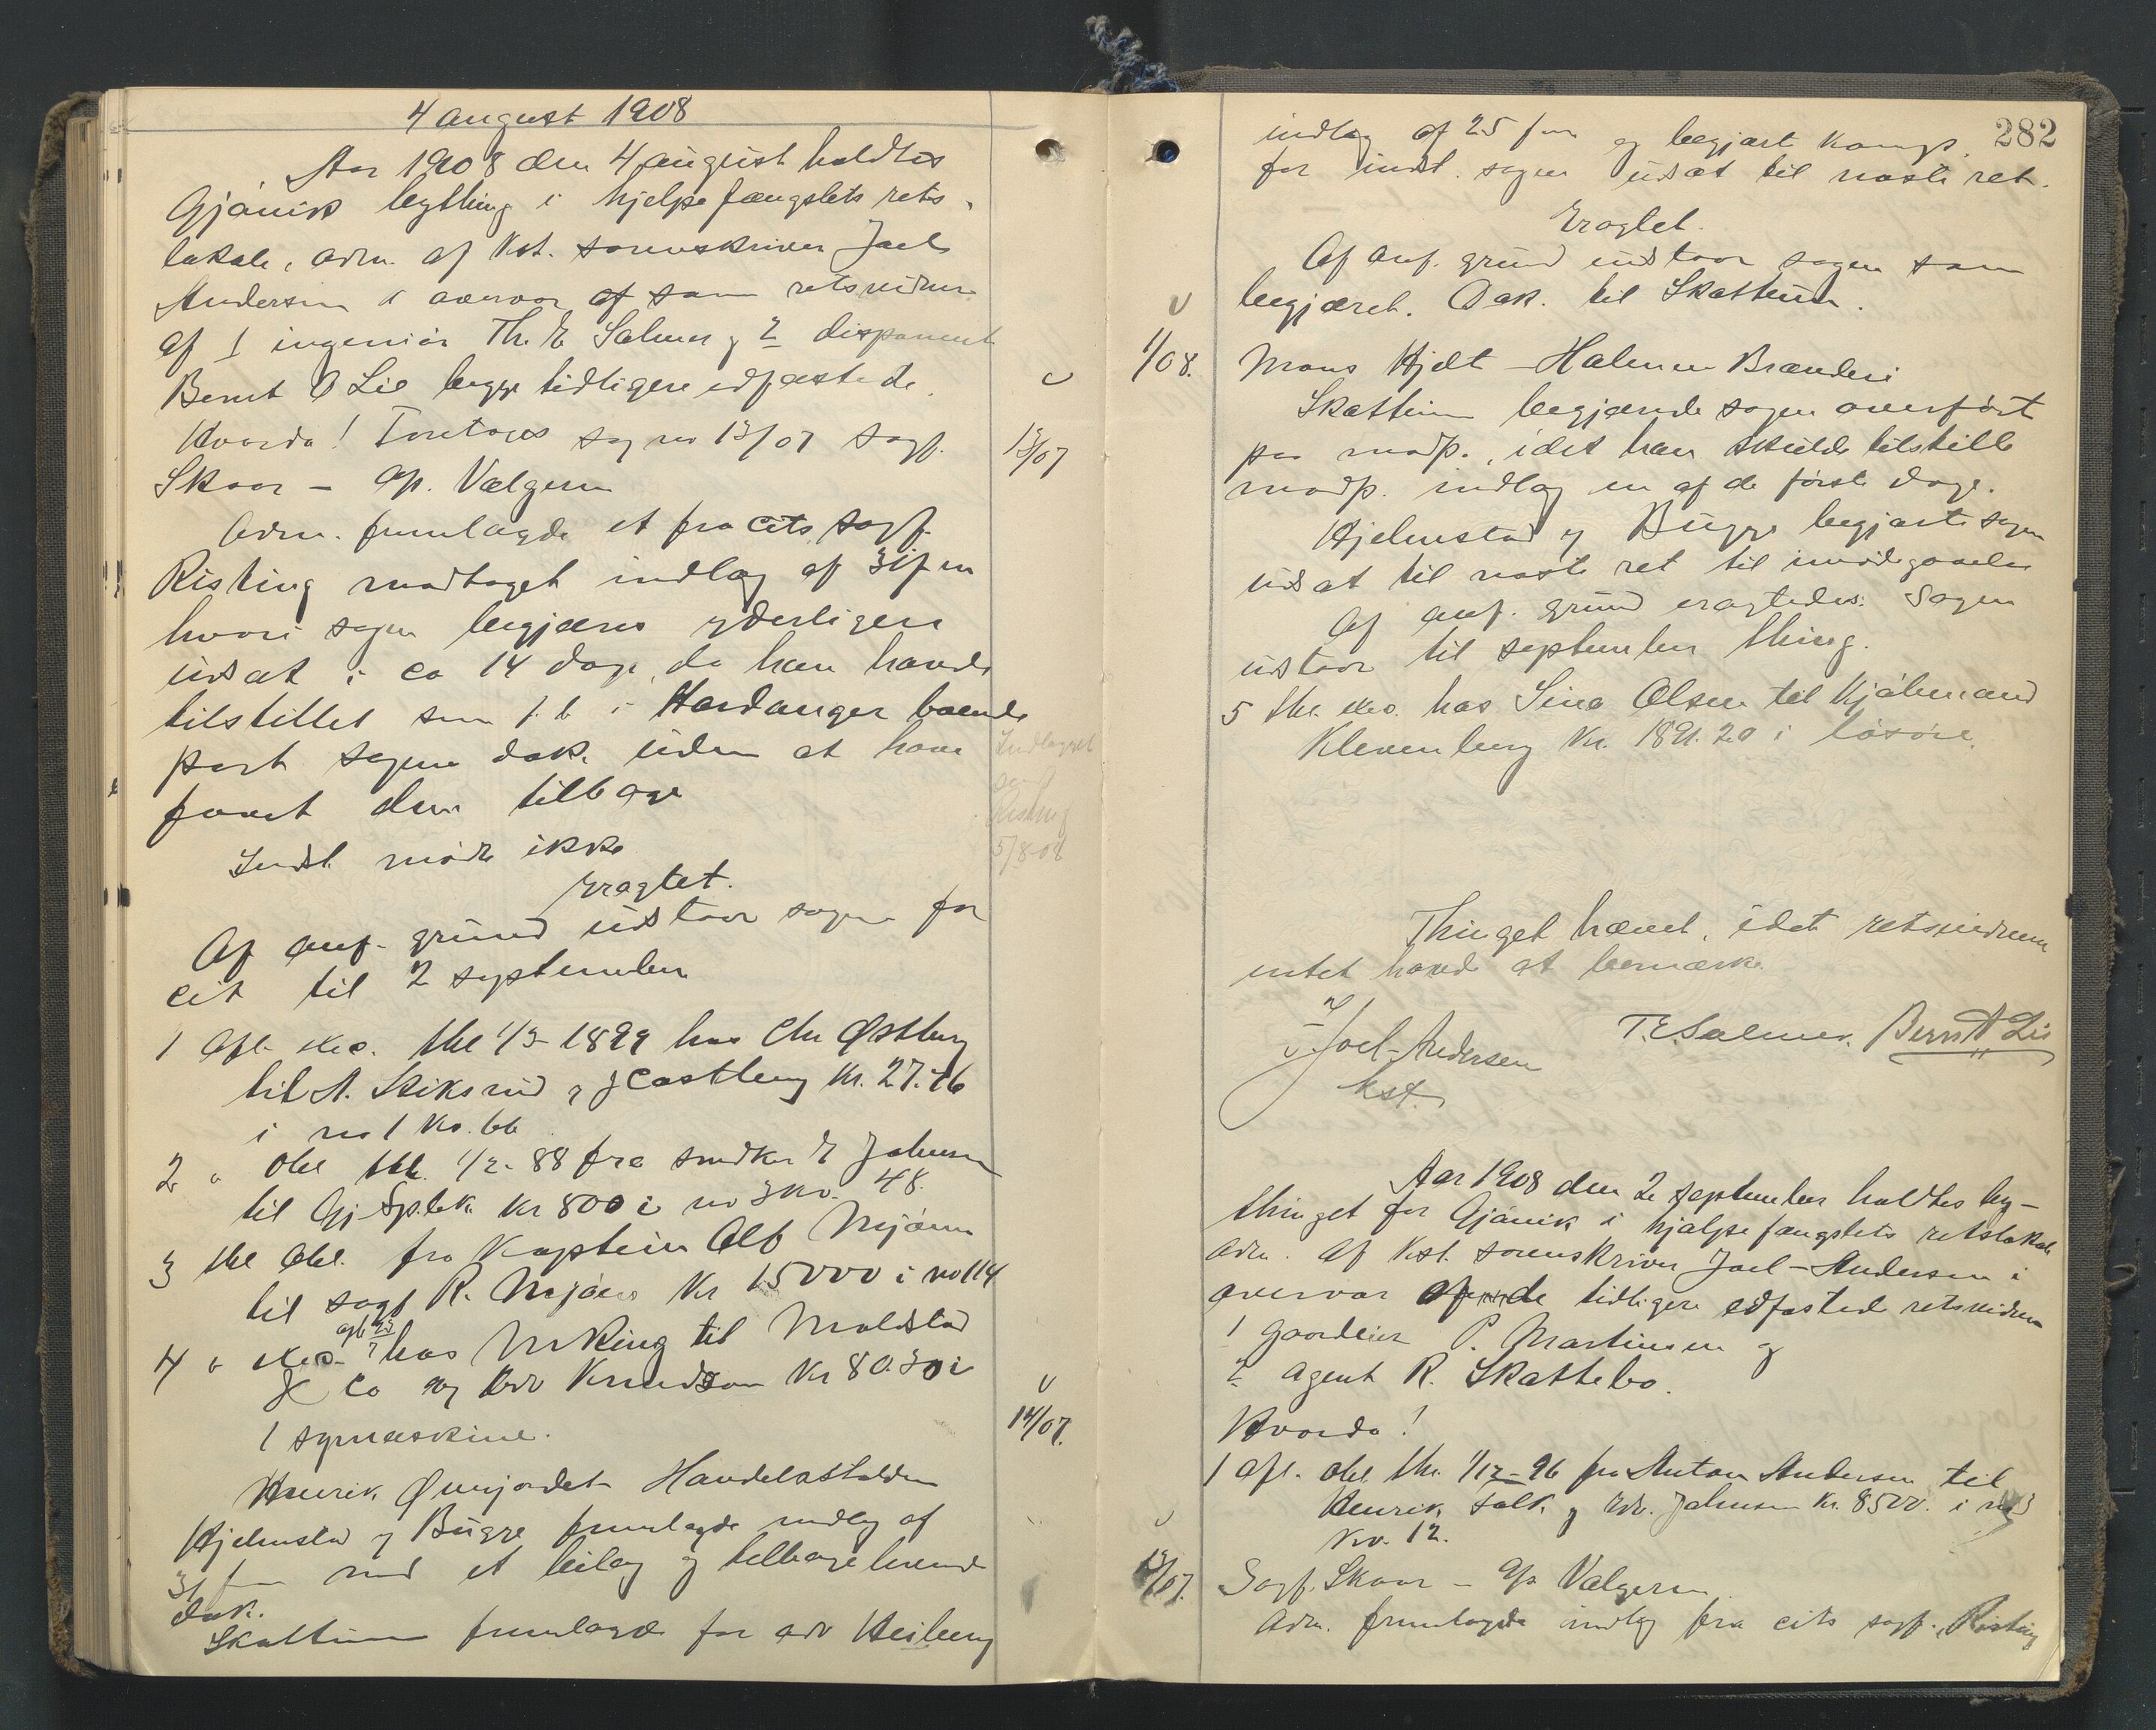 4 august 1908
Aar 1908 den 4 august holdtes
Gjøvik bything i hjelpefængslets rets-
lokale, adm. af Kst. sorenskriver Joel
Andersen i overvær af som retsvidner
af 1 ingeniør Th. E Salmer og 2 disponent
Bernt A Lie begge tidligere edfæstede
Hvorda! Foretoges sag no 13/07 sagf.
13/07
Skaar - Op. Valgern
Adm. fremlagde et fra cits sagf.
Risting modtaget indlæg af
hvori sagen begjæres yderligere
udsat i ca 14 dage, da han havde
tilstillet sin i Hardanger boende
part sagens dok. uden at have
faaet dem tilbage
Indlægget
Risting
5/8-08
Indst mødte ikke
Eragtet.
Af anf. grund udstaar sagen for
cit til 2 september
1 Afl. exec. thl 1/3-1899 hos Chr Østberg
til A. Skiksrud og J Castberg Kr. 27.76
i no 1 Kv. 66
2 " Obl thl. 1/2-88 fra snedker E Johnsen
til Gj. Sp.bk Kr 800 i no 3 Kv. 48.
3 thl Obl. fra Kaptein Alb Mjøen
til sagf R. Mjøen Kr 15000 i no 114
4 " exec. hos M Ring til Moldstad
& Co og Edv Knudson Kr 80.30 i
1 symaskine.
14/07.
Henrik Øverjordet - Handelsstanden
Hjelmstad og Bugge fremlagde indlæg af
med et bilag og tilbageleverede
dok.
Skattum fremlagde for adv Heiberg
282
indlæg af 25 f.m. og begjært
for indst. sagen udsat til næste ret.
Eragtet.
Af anf. grund udstaar sagen som
begjæret. Dok. til Skattum.
1/08. Mons Hjelt - Holmen Brænderi
Skattum begjærede sagen overført
paa modp., idet han skulde tilstille
modp. indlæg en af de første dage.
Hjelmstad og Bugge begjærte sagen
udsat til næste ret til imødegaaelse
Af anf. grund eragtedes: Sagen
udstaar til september thing.
5 thl. exec. hos Sina Olsen til Hjalmar and
Klevenberg Kr. 1891.20 i løsøre.
Thinget hævet, idet retsvidnerne
intet havde at bemærke
Joel-Andersen
kst.
T. E Salmer. Bernt A Lie
Aar 1908 den 2 september holdtes by-
thinget for Gjøvik i hjælpefængslets retslokale
adm. af Kst. sorenskriver Joel-Andersen i
overvær af de tidligere edfæsted retsvidner
1 Gaardeier P. Martinsen og
2 Agent R. Skattebo.
Hvorda!
1 Afl. obl. thl. 1/12-96 fra Anton Andersen til
Henrik Falk og Edv. Johnsen Kr. 8500. i no 3
Kv. 12.
13/07. Sagf. Skaar - Op Valgern
Adm. fremlagde indlæg fra cits sagf. Risting